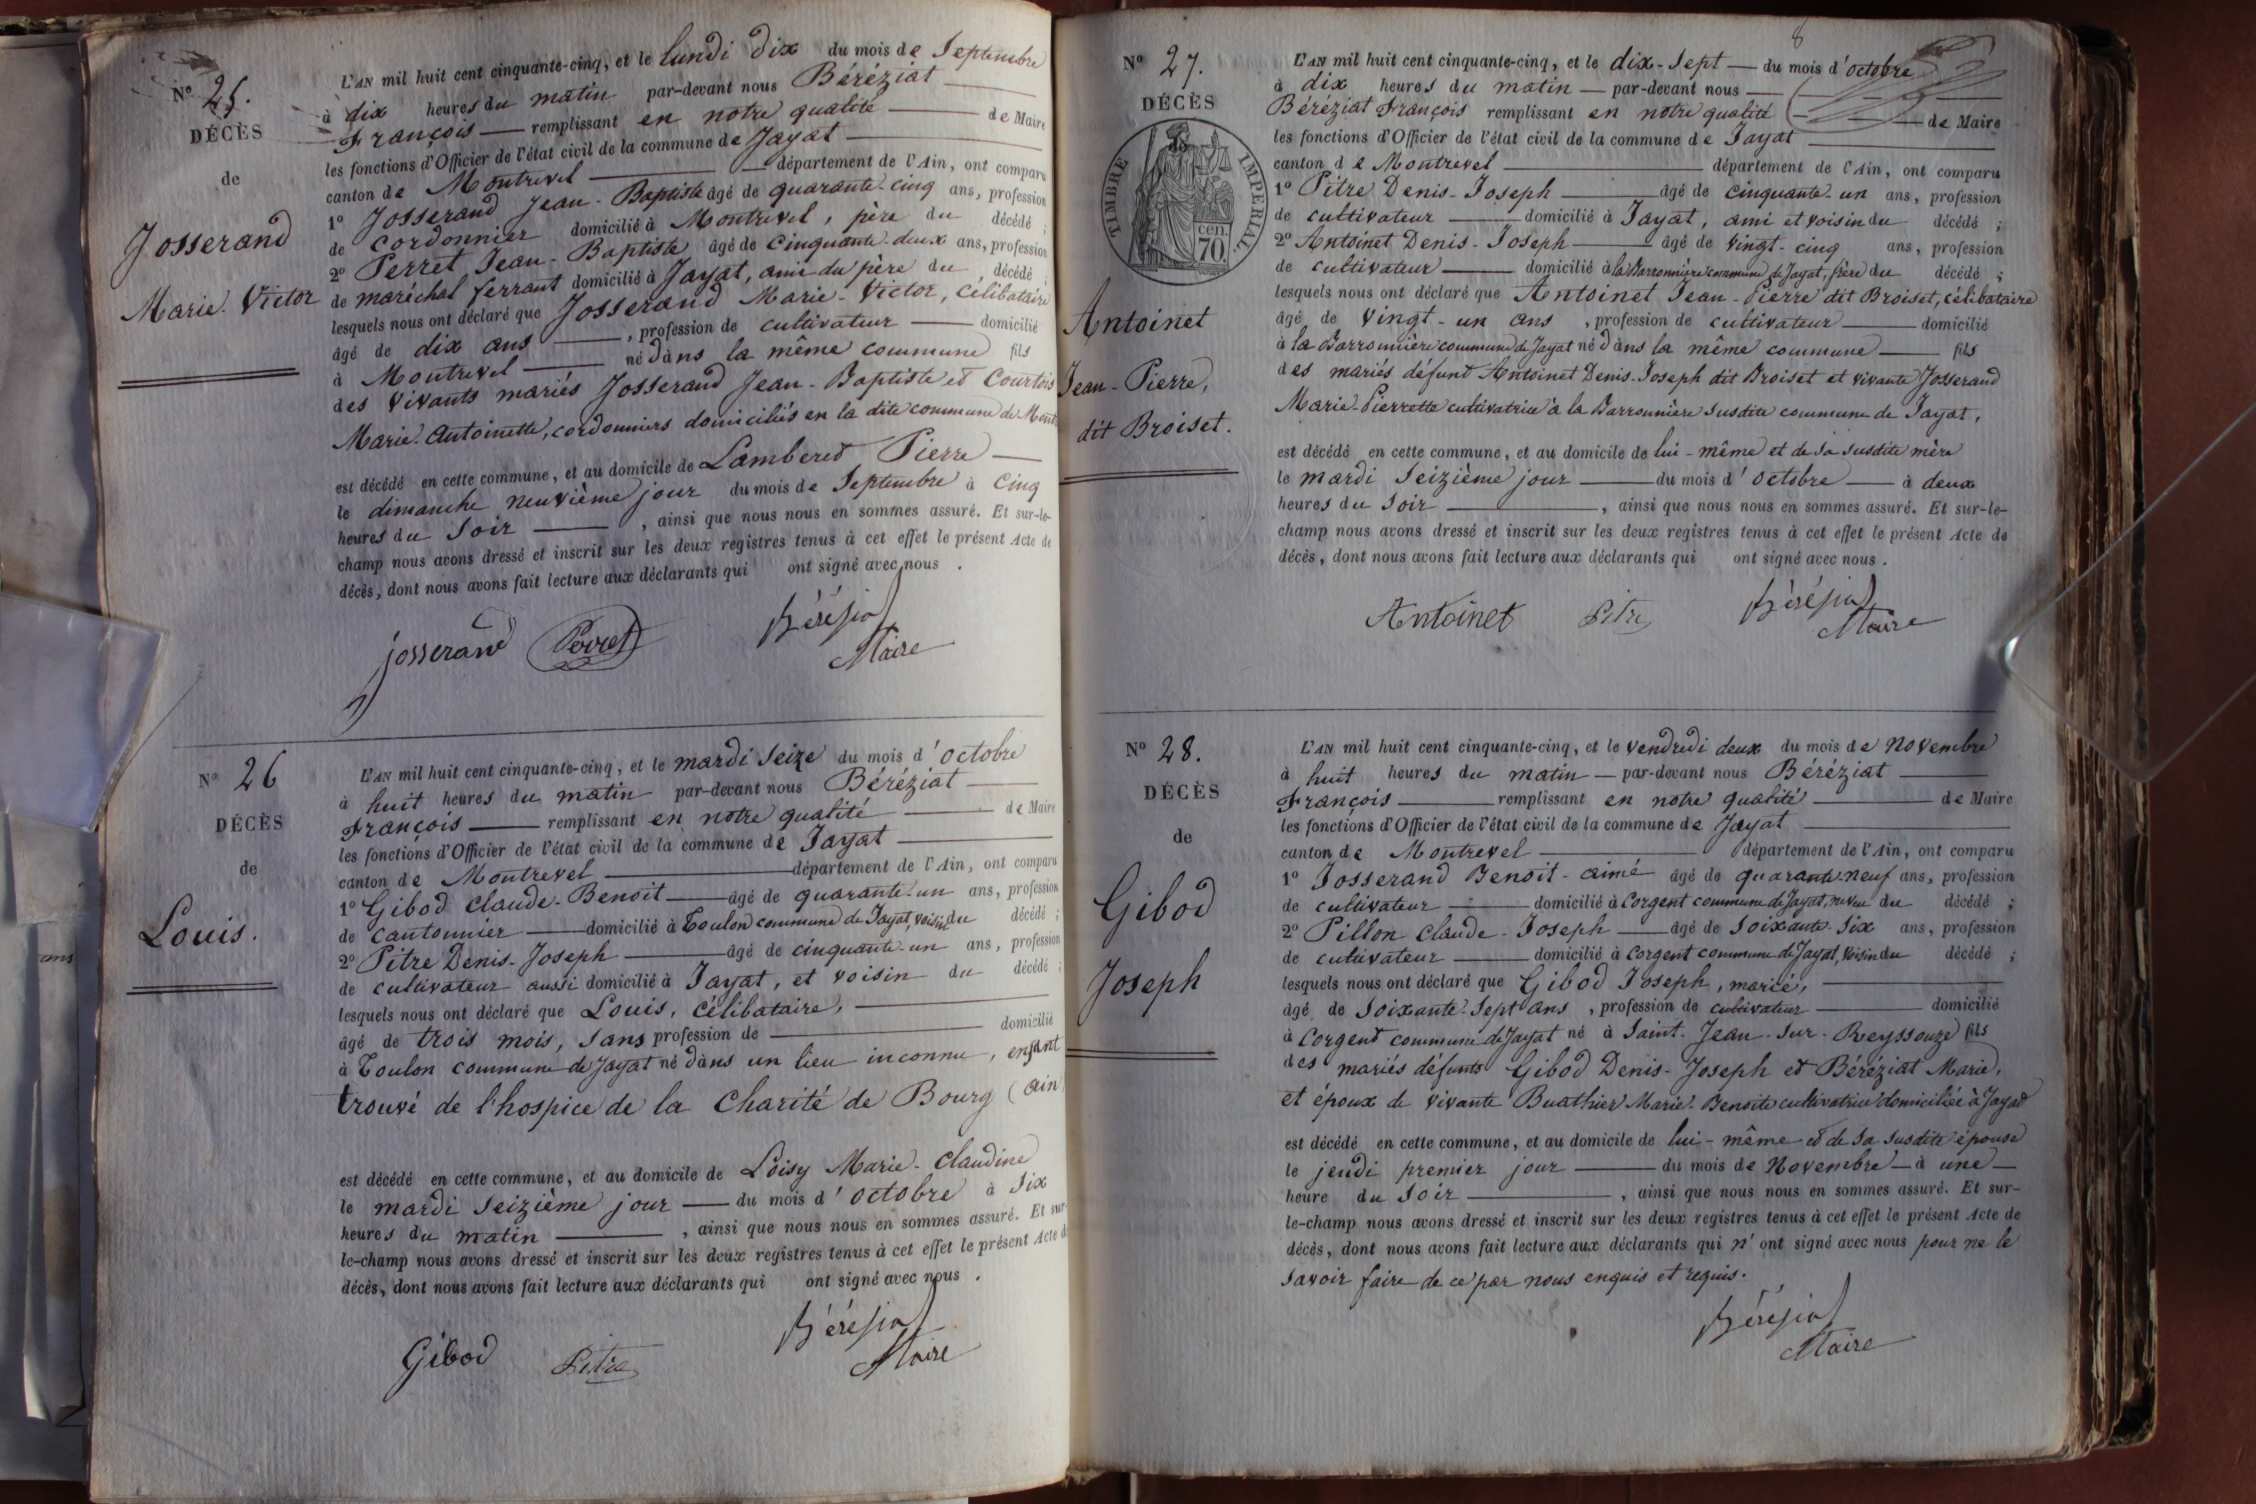 Nº 25.
DÉCÈS
de
Josserand
Marie-Victor
L'AN mil huit cent cinquante-cinq, et le lundi dix du mois de Septembre
à dix heures du matin par-devant nous Béréziat
François remplissant en notre qualité de Maire
les fonctions d'Officier de l'état civil de la commune de Jayat
canton de Montrevel département de l'Ain, ont comparu
1º Josserand Jean-Baptiste âgé de quarante-cinq ans, profession
de cordonnier domicilié à Montrevel, père du décédé ;
2º Perret Jean-Baptiste âgé de cinquante-deux ans, profession
de maréchal ferrant domicilié à Jayat, ami du père du décédé ;
lesquels nous ont déclaré que Josserand Marie-Victor, célibataire
âgé de dix ans, profession de cultivateur domicilié
à Montrevel né dans la même commune fils
des vivants mariés Josserand Jean-Baptiste et Courtois
Marie-Antoinette, cordonniers domiciliés en la dite commune de Mont
est décédé en cette commune, et au domicile de Lambered Pierre
le dimanche neuvième jour du mois de Septembre à cinq
heures du soir, ainsi que nous nous en sommes assuré. Et sur-le-
champ nous avons dressé et inscrit sur les deux registres tenus à cet effet le présent Acte de
décès, dont nous avons fait lecture aux déclarants qui ont signé avec nous.
josserand Perret Béréziat
Maire
Nº 26
DÉCÈS
de
Louis.
L'AN mil huit cent cinquante-cinq, et le mardi seize du mois d'octobre
à huit heures du matin par-devant nous Béréziat
François remplissant en notre qualité de Maire
les fonctions d'Officier de l'état civil de la commune de Jayat
canton de Montrevel département de l'Ain, ont comparu
1º Gibod Claude-Benoit âgé de quarante-un ans, profession
de cantonnier domicilié à Toulon commune de Jayat, voisin du décédé ;
2º Pitre Denis-Joseph âgé de cinquante-un ans, profession
de cultivateur aussi domicilié à Jayat, et voisin du décédé ;
lesquels nous ont déclaré que Louis, célibataire,
âgé de trois mois, sans profession de domicilié
à Toulon commune de Jayat né dans un lieu inconnu, enfant
trouvé de l'hospice de la Charité de Bourg (ain
est décédé en cette commune, et au domicile de Loisy Marie-Claudine
le mardi seizième jour du mois d'octobre à six
heures du matin, ainsi que nous nous en sommes assuré. Et sur-
le-champ nous avons dressé et inscrit sur les deux registres tenus à cet effet le présent Acte de
décès, dont nous avons fait lecture aux déclarants qui ont signé avec nous.
Gibod Pitre Béréziat
Maire
8
Nº 27.
DÉCÈS
TIMBRE IMPERIAL.
cen.
70.
Antoinet
Jean-Pierre,
dit Broiset.
L'AN mil huit cent cinquante-cinq, et le dix-sept du mois d'octobre
à dix heures du matin par-devant nous
Béréziat François remplissant en notre qualité de Maire
les fonctions d'Officier de l'état civil de la commune de Jayat
canton de Montrevel département de l'Ain, ont comparu
1º Pitre Denis-Joseph âgé de cinquante-un ans, profession
de cultivateur domicilié à Jayat, ami et voisin du décédé ;
2º Antoinet Denis-Joseph âgé de vingt-cinq ans, profession
de cultivateur domicilié à la Barronnière commune de Jayat, frère du décédé ;
lesquels nous ont déclaré que Antoinet Jean-Pierre dit Broiset, célibataire
âgé de vingt-un ans, profession de cultivateur domicilié
à la Barronnière commune de Jayat né dans la même commune fils
des mariés défunt Antoinet Denis-Joseph dit Broiset et vivante Josserand
Marie-Pierrette cultivatrice à la Barronnière susdite commune de Jayat,
est décédé en cette commune, et au domicile de lui-même et de sa susdite mère
le mardi seizième jour du mois d'octobre à deux
heures du soir, ainsi que nous nous en sommes assuré. Et sur-le-
champ nous avons dressé et inscrit sur les deux registres tenus à cet effet le présent Acte de
décès, dont nous avons fait lecture aux déclarants qui ont signé avec nous.
Antoinet Pitre Béréziat
Maire
Nº 28.
DÉCÈS
de
Gibod
Joseph
L'AN mil huit cent cinquante-cinq, et le vendredi deux du mois de novembre
à huit heures du matin par-devant nous Béréziat
François remplissant en notre qualité de Maire
les fonctions d'Officier de l'état civil de la commune de Jayat
canton de Montrevel département de l'Ain, ont comparu
1º Josserand Benoit-aimé âgé de quarante-neuf ans, profession
de cultivateur domicilié à Corgent commune de Jayat, neveu du décédé ;
2º Pillon Claude-Joseph âgé de soixante-six ans, profession
de cultivateur domicilié à Corgent commune de Jayat, voisin du décédé ;
lesquels nous ont déclaré que Gibod Joseph, marié,
âgé de soixante-sept ans, profession de cultivateur domicilié
à Corgent commune de Jayat né à Saint-Jean-sur-Reyssouze fils
des mariés défunts Gibod Denis-Joseph et Béréziat Marie,
et époux de vivante Buathier Marie-Benoite cultivatrice domiciliée à Jayat
est décédé en cette commune, et au domicile de lui-même et de sa susdite épouse
le jeudi premier jour du mois de Novembre à une
heure du soir, ainsi que nous nous en sommes assuré. Et sur-
le-champ nous avons dressé et inscrit sur les deux registres tenus à cet effet le présent Acte de
décès, dont nous avons fait lecture aux déclarants qui n'ont signé avec nous pour ne le
savoir faire de ce par nous enquis et requis.
Béréziat
Maire